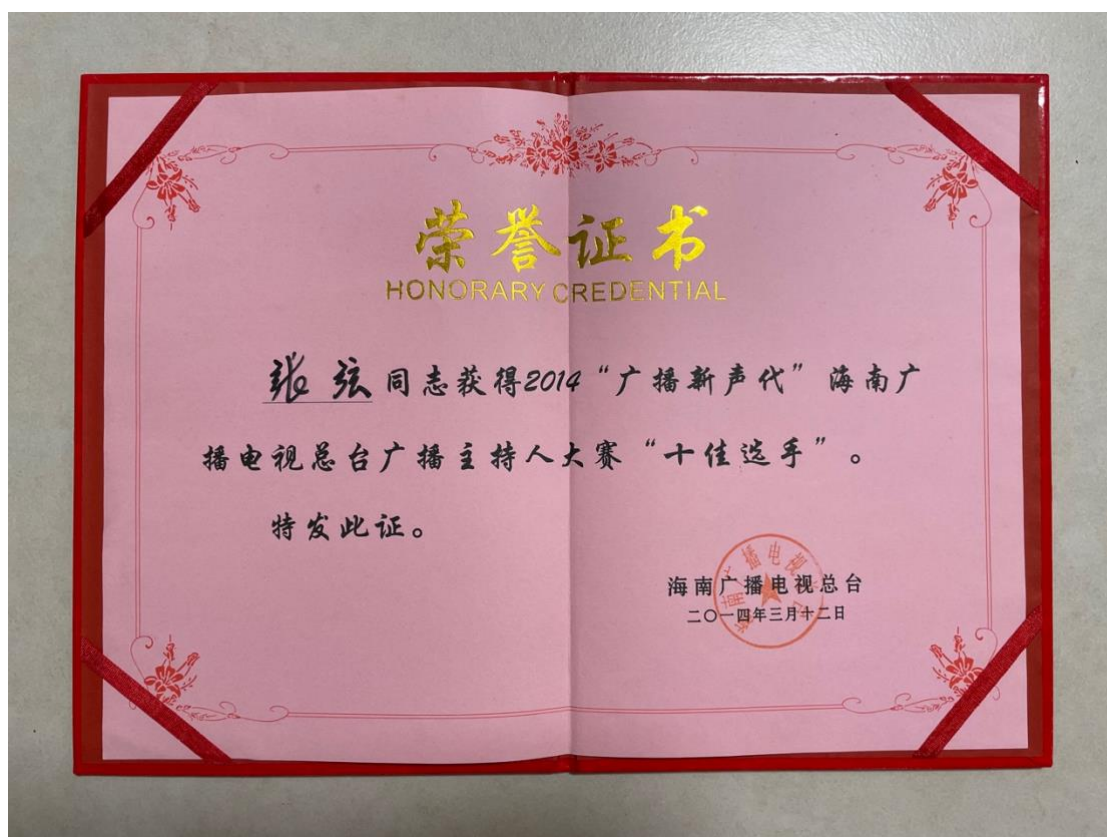 荣誉证书
HONORARY CREDENTIAL
张弦同志获得2014“广播新声代”海南广
播电视总台广播主持人大赛“十佳选手”。
特发此证。
海南广播电视总台
二〇一四年三月十二日